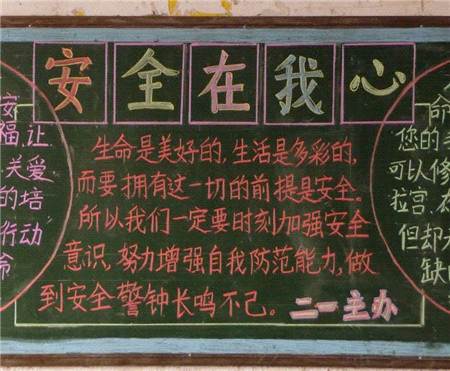 安全在我心
安
福,让
关爱
的培
行动
命
生命是美好的,生活是多彩的,
而要拥有这一切的前提是安全。
所以我们一定要时刻加强安全
意识,努力增强自我防范能力,做
到安全警钟长鸣不己。二一主办
命
您的
可以修
拉宫,
但却无
缺